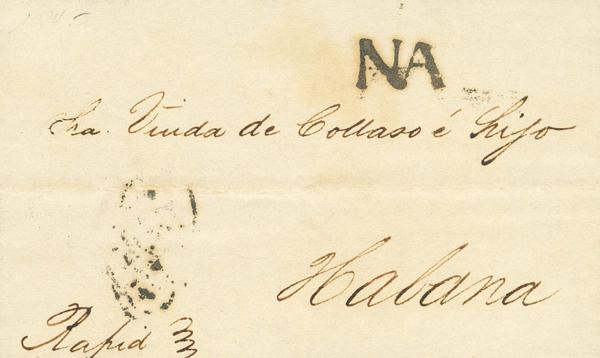 NA
Sra. Viuda de Collaso é Hijo
Habana
Rapid